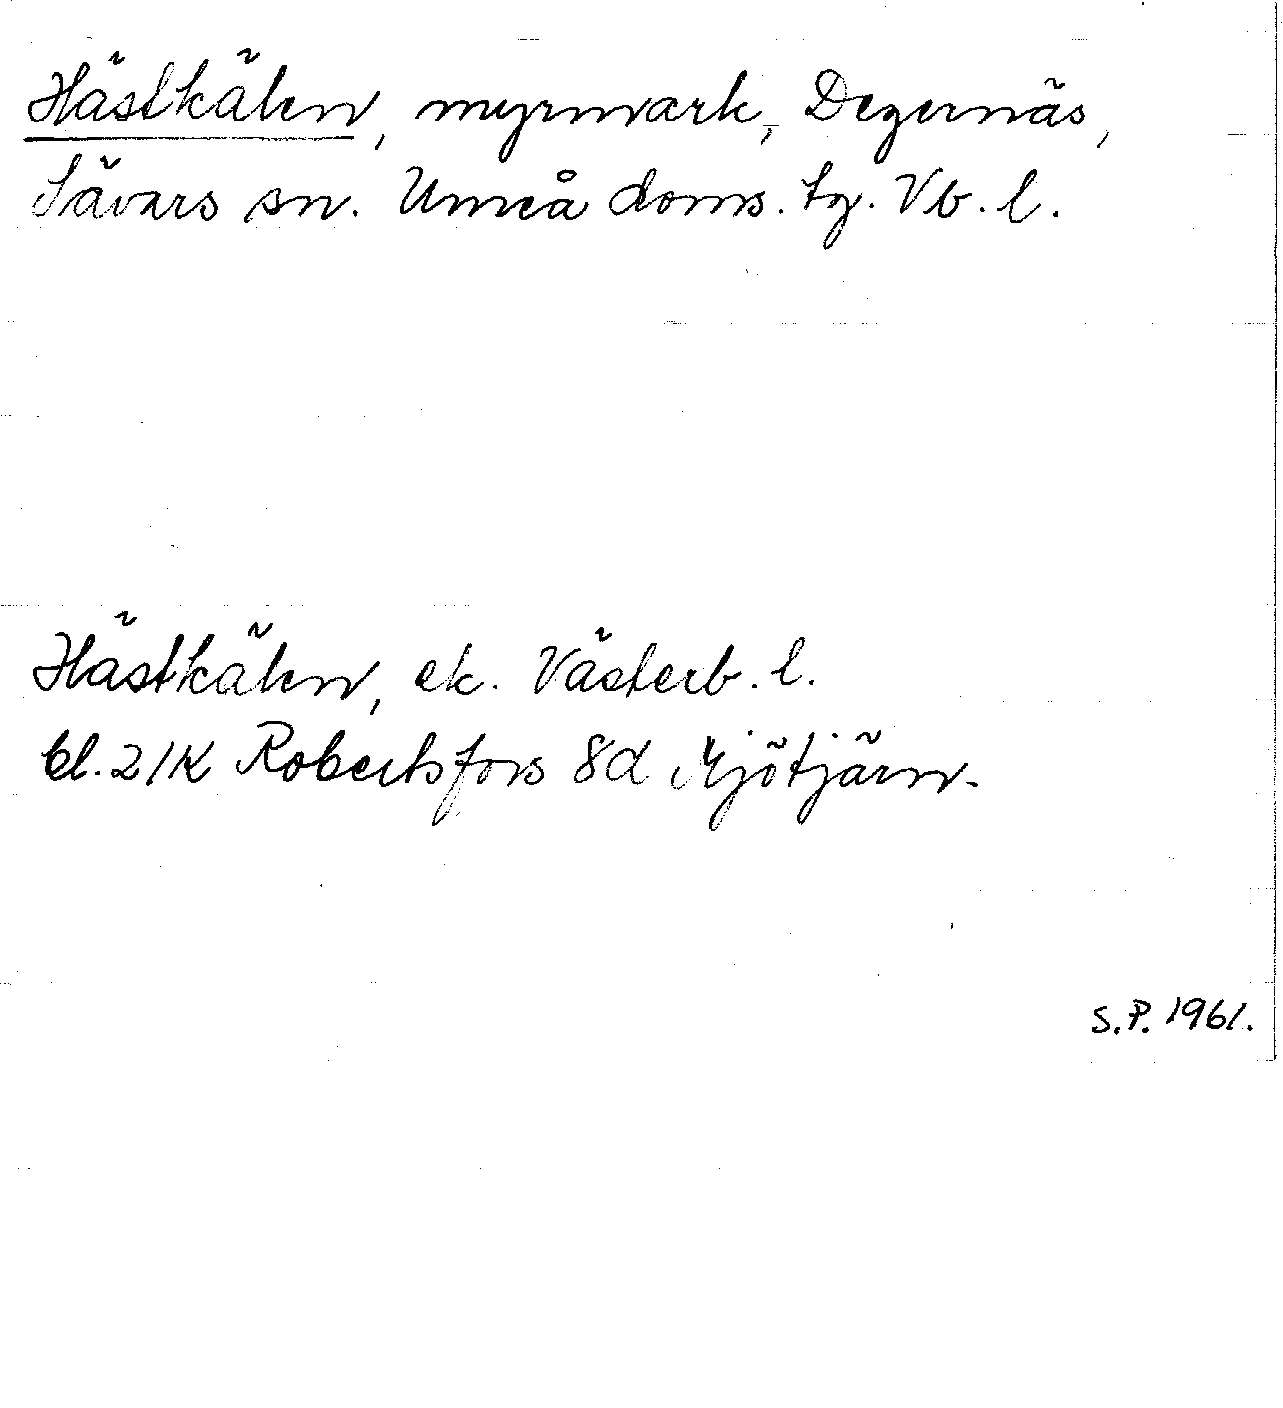 Hästkälen, myrmark, Degernäs,
Sävars sn. Umeå doms. tg. Vb. l.
Hästkälen, ek. Västerb. l.
bl. 21K Robertsfors 8d Mjötjärn.
S.P. 1961.